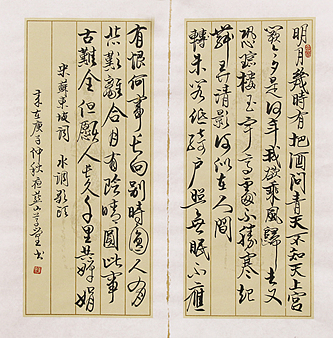 明月幾時有把酒問青天不知天上宮
闕今夕是何年我欲乘風歸去又
恐瓊樓玉宇高處不勝寒起
舞弄清影何似在人間
轉朱閣低綺戶照無眠不應
有恨何事長向別時圓人有
悲歡離合月有陰晴圓此事
古難全但願人長久千里共嬋娟
宋蘇東坡詞 水調歌頭
在庚子仲秋 書